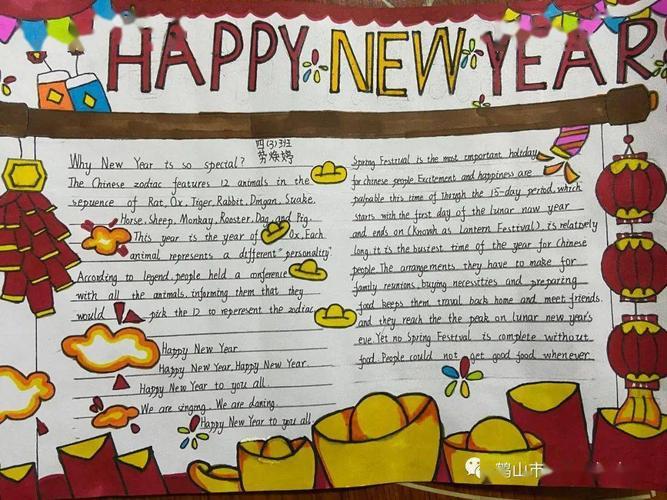 HAPPY NEW YEAR
四(3)班
劳焕婷
Why New Year is so special?
The Chinese zodiac features 12 animals in the
sepuence of Rat, Ox, Tiger, Rabbit, Dragan, Suake,
Horse, Sheep, Monkay, Rooster, Dag, and Pig.
This year is the year of Ox, Each
animal represents a different "personality"
According to legend, people held a conference
with all the animals, informing them that they
would pick the 12 to repersent the zodiac
Happy New Year
Happy New Year, Happy New Year
Happy New Year to you all.
We are singing. We are daning.
Happy New Year to you all
Spring Festival is the most important holiday
for chinese people Excitement and happiness are
palpable this time of Through the 15-day period, which
starts with the first day of the lunar naw year
and ends on (Known as Lantern Festival), is relatively
long it is the busiest time of the year for Chinese
people The arrangements they have to make for
family reunions, buying necessities and preparing
food keeps them travel back home and meet friends.
and they reach the the peak on lunar new year's
eve. Yet no Spring Festival is complete without
food. People could not get good food whenever
鹤山市